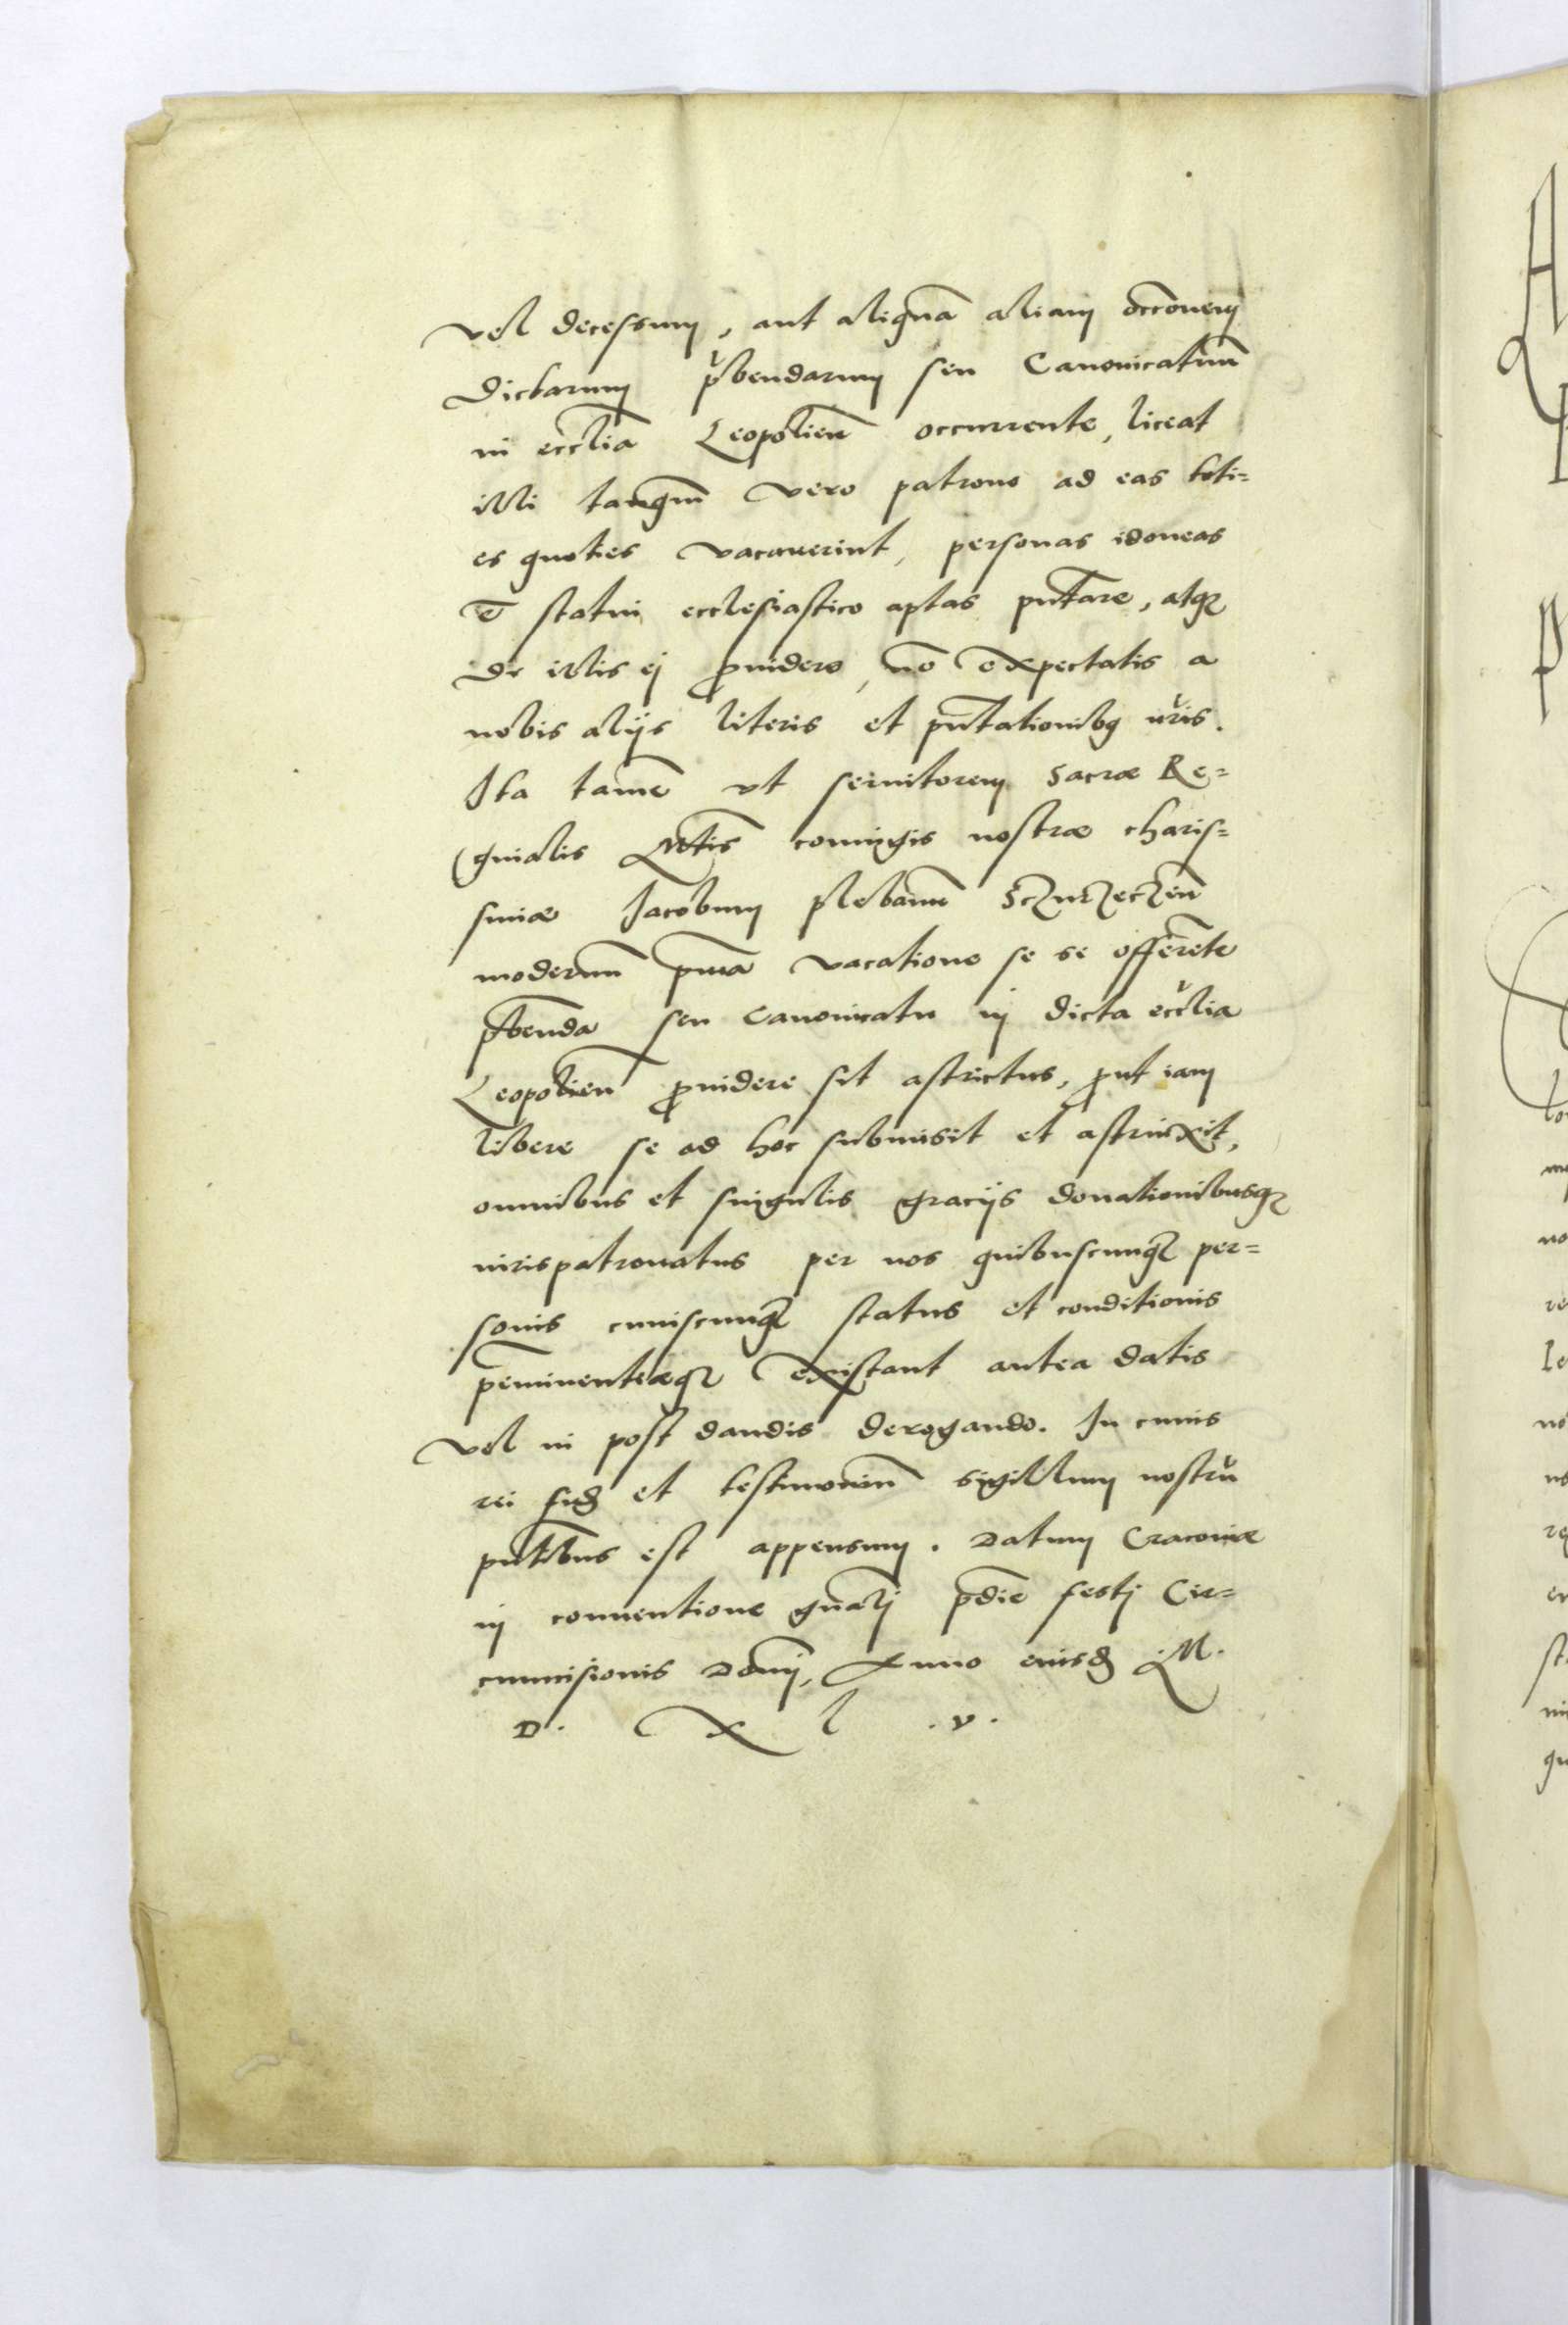 vel decessum, aut aliquā aliam occōnem
dictarum p̄bendarum seu Canonicatuū
in eccĺia Leopolieñ occurrente, liceat
illi tanq̄m vero patrono ad eas toti=
es quoties vacauerint, personas idoneas
et statui ecclesiastico aptas pn̄tare, atq₃
de illis ej prouidere, nō expectatis a
nobis alijs literis et pn̄tationibq nr̄is.
Ita tamē vt seruitorem Sacræ Re=
ginalis Mtis coniugis nostræ charis=
simæ Jacobum plebanū
modernū prima vacatione se se offerēte
p̄benda seu Canonicatu in dicta eccĺia
Leopolieñ prouidere sit astrictus, prout iam
libere se ad hoc submisit et astrinxit,
omnibus et singulis gracijs donationibusq₃
iurispatronatus per nos quibuscunq₃ per=
sonis cuiuscunq₃ status et conditionis
p̄eminentiæq₃ existant antea datis
vel in post dandis derogando. In cuius
rei fidē et testimoniū sigillum nostrū
pn̄tibus est appensum. Datum Cracoviæ
in conuentione gn̄alj p̄die festj Cir=
cumcisionis Domj, Anno eiusdē M.
D. X L .v.